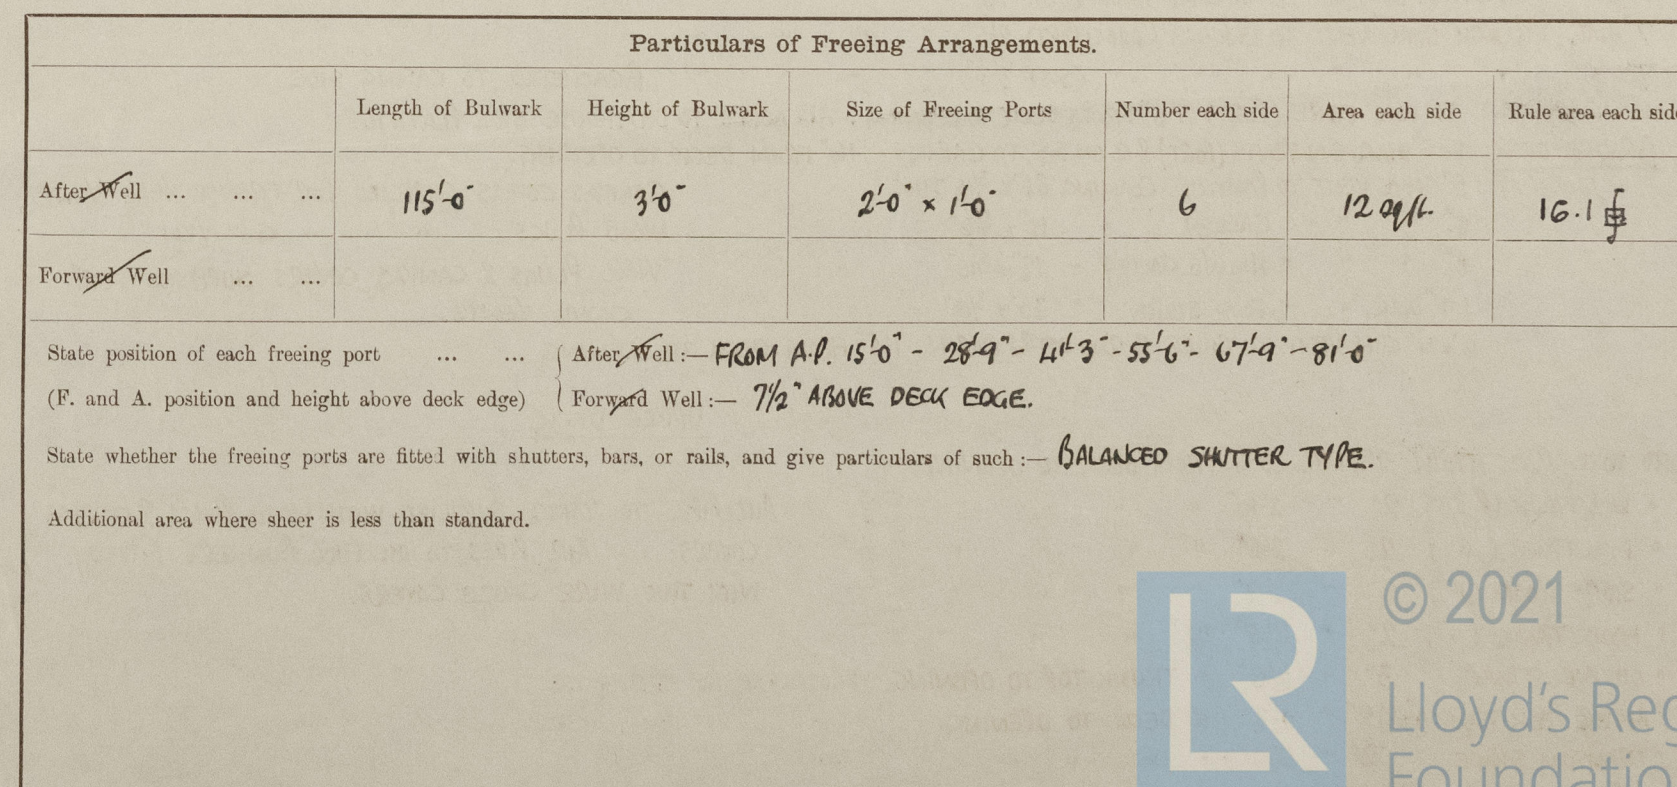 Particulars of Freeing Arrangements.
Length of Bulwark Height of Bulwark Size of Freeing Ports Number each side Area each side Rule area each side
After Well ... ... ... 115'-0" 3'-0" 2'-0" x 1'-0" 6 12 sq ft. 16.1
Forward Well ... ...
State position of each freeing port ... ... After Well :— FROM A.P. 15'-0" - 28'-9" - 41'-3" - 55'-6" - 67'-9" - 81'-0"
(F. and A. position and height above deck edge) Forward Well :— 7½" ABOVE DECK EDGE.
State whether the freeing ports are fitted with shutters, bars, or rails, and give particulars of such :— BALANCED SHUTTER TYPE.
Additional area where sheer is less than standard.
LR
© 2021
Lloyd's Reg
Foundatio